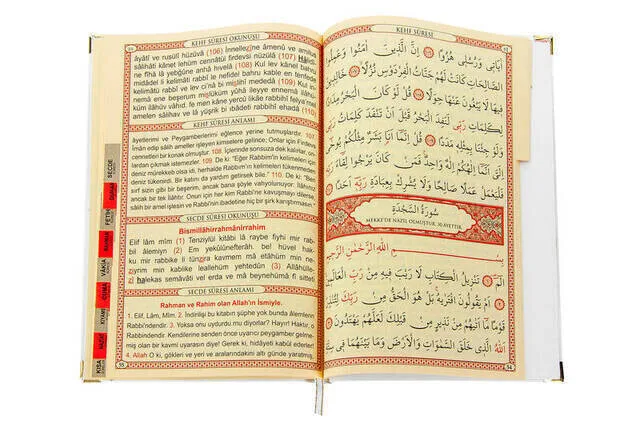 KEHF SÛRESİ OKUNUŞU
âyâtî ve rusülî hüzüvâ (106) İnnellezîne âmenû ve amilus
sâlihâti kânet lehüm cennâtül firdevsi nüzülâ (107) Hâlidî-
ne fîhâ lâ yebğûne anhâ hıvelâ (108) Kul lev kânel bahru
midâdel li kelimâti rabbî le nefidel bahru kable en tenfede
kelimâtü rabbî ve lev ci'nâ bi mislihî mededâ (109) Kul in-
nemâ ene beşerum mislüküm yûhâ ileyye ennemâ ilâhü-
küm ilâhüv vâhıd, fe men kâne yercû likâe rabbihî felya'mel
amelen sâlihav ve lâ yüşrik bi ibâdeti rabbihî ehadâ (110)
KEHF SÛRESİ ANLAMI
âyetlerimi ve Peygamberlerimi eğlence yerine tutmuşlardır. 107.
İman edip sâlih ameller işleyen kimselere gelince; Onlar için Firdevs
cennetleri bir konak olmuştur. 108. İçlerinde sonsuza dek kalırlar, on-
lardan çıkmak istemezler. 109. De ki: "Eğer Rabbim'in kelimeleri için
deniz mürekkeb olsa idi, herhalde Rabbim'in kelimeleri tükenmeden
deniz tükenirdi. Bir katını da yardım getirsek bile." 110. De ki: "Ben
sırf sizin gibi bir beşerim, ancak bana şöyle vahyolunuyor: İlâhınız
ancak bir tek ilâhtır. Onun için her kim Rabbi'ne kavuşmayı dilerse
salih bir amel işlesin ve Rabbinin ibadetine hiç bir şirk karıştırmasın."
SECDE SÛRESİ OKUNUŞU
Bismillâhirrahmânirrahîm
Elif lâm mîm (1) Tenzîylül kitâbi lâ raybe fîyhi mir rab-
bil âlemîyn (2) Em yekûlûnefterâh. bel hüvel hak-
ku mir rabbike li tünzira kavmem mâ etâhüm min ne-
ziyrim min kablike leallehüm yehtedûn (3) Allâhülle-
zî halekas semâvâti vel erda ve mâ beynehümâ fî sitteti
SECDE SÛRESİ ANLAMI
Rahman ve Rahim olan Allah'ın İsmiyle.
1. Elif, Lâm, Mîm. 2. İndirilişi bu kitabın şüphe yok bunda âlemlerin
Rabbi'ndendir. 3. Yoksa onu uydurdu mu diyorlar? Hayır! Haktır, o
Rabbindendir. Kendilerine senden önce uyarıcı peygamber gelme-
miş olan bir kavmi uyarasın diye! Gerek ki, hidâyeti kabûl ederler!
4. Allah O ki, gökleri ve yeri ve aralarındakini altı günde yaratmış,
55
SECDE
DUHAN
FETİH
RAHMAN
VAKIA
CUMA
KIYAME
KISA
KEHF SÛRESİ
اٰيَاتٖى وَرُسُلٖى هُزُوًا ﴿١٠٦﴾ اِنَّ الَّذٖينَ اٰمَنُوا وَعَمِلُوا
الصَّالِحَاتِ كَانَتْ لَهُمْ جَنَّاتُ الْفِرْدَوْسِ نُزُلًا ﴿١٠٧﴾ خَالِدٖينَ
فٖيهَا لَا يَبْغُونَ عَنْهَا حِوَلًا ﴿١٠٨﴾ قُلْ لَوْ كَانَ الْبَحْرُ مِدَادًا
لِكَلِمَاتِ رَبّٖى لَنَفِدَ الْبَحْرُ قَبْلَ اَنْ تَنْفَدَ كَلِمَاتُ رَبّٖى
وَلَوْ جِئْنَا بِمِثْلِهٖ مَدَدًا ﴿١٠٩﴾ قُلْ اِنَّمَا اَنَا بَشَرٌ مِثْلُكُمْ يُوحٰى
اِلَىَّ اَنَّمَا اِلٰهُكُمْ اِلٰهٌ وَاحِدٌ فَمَنْ كَانَ يَرْجُوا لِقَاءَ رَبِّهٖ
فَلْيَعْمَلْ عَمَلًا صَالِحًا وَلَا يُشْرِكْ بِعِبَادَةِ رَبِّهٖ اَحَدًا ﴿١١٠﴾
سُورَةُ السَّجْدَةِ
MEKKE'DE NAZİL OLMUŞTUR. 30 AYETTİR.
بِسْمِ اللّٰهِ الرَّحْمٰنِ الرَّحٖيمِ
الٓمٓ ﴿١﴾ تَنْزٖيلُ الْكِتَابِ لَا رَيْبَ فٖيهِ مِنْ رَبِّ الْعَالَمٖينَ ﴿٢﴾
اَمْ يَقُولُونَ افْتَرٰيهُ بَلْ هُوَ الْحَقُّ مِنْ رَبِّكَ لِتُنْذِرَ
قَوْمًا مَا اَتٰيهُمْ مِنْ نَذٖيرٍ مِنْ قَبْلِكَ لَعَلَّهُمْ يَهْتَدُونَ ﴿٣﴾
اَللّٰهُ الَّذٖى خَلَقَ السَّمٰوَاتِ وَالْاَرْضَ وَمَا بَيْنَهُمَا فٖى سِتَّةِ
54